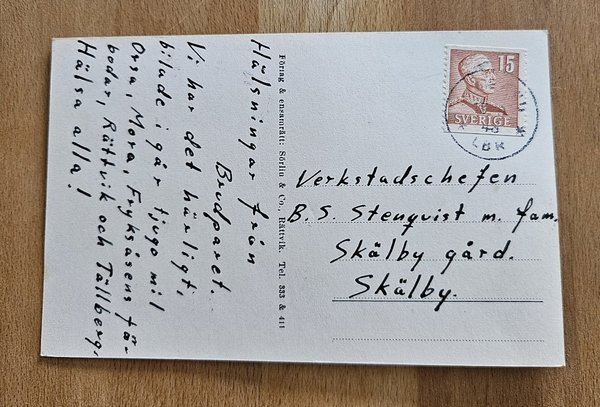 Hälsningar från
Brudparet.
Vi har det härligt,
bilade i går tjugo mil
Orsa, Mora, Fryksåsens fä-
bodar, Rättvik och Tällberg.
Hälsa alla!
Förlag & ensamrätt: Sörlin & Co, Rättvik. Tel. 333 & 411
15
SVERIGE
LBK
Verkstadschefen
B. S. Stenqvist m. fam.
Skälby gård.
Skälby.